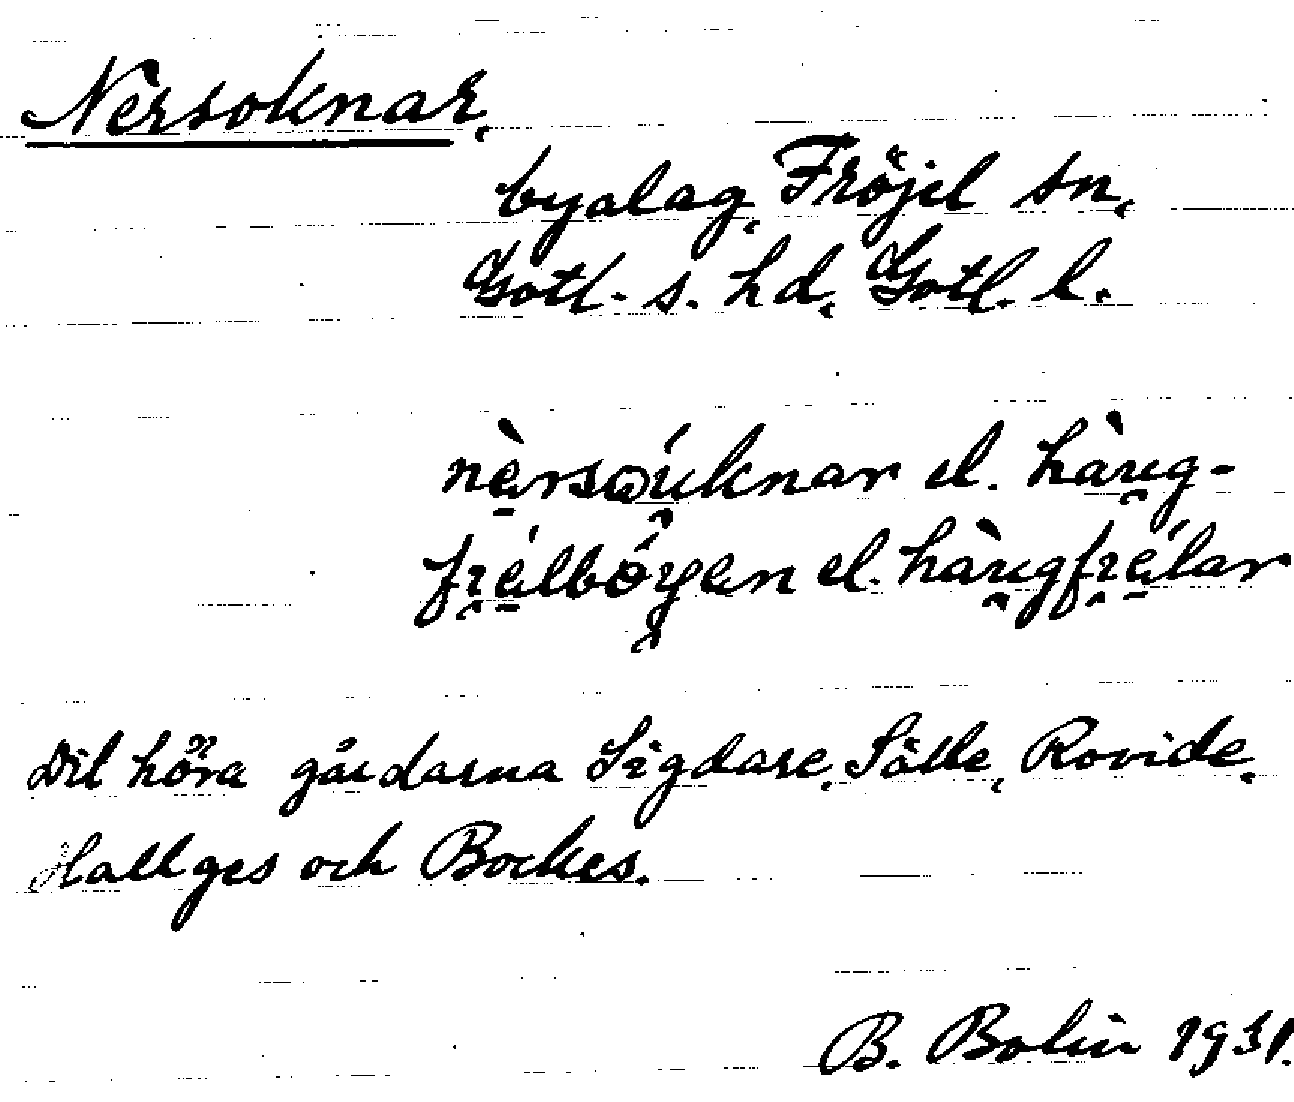 Nersoknar,
byalag, Fröjel sn,
Gotl. s. hd, Gotl. l.
nè̱rsǫu̯knar el. hàu̯g-
fri̯é̱lbǫ́y̯en el. hàu̯gfri̯é̱lar
Dit höra gårdarna Sigdare, Sälle, Rovide,
Hallges och Bockes.
B. Bolin 1931.